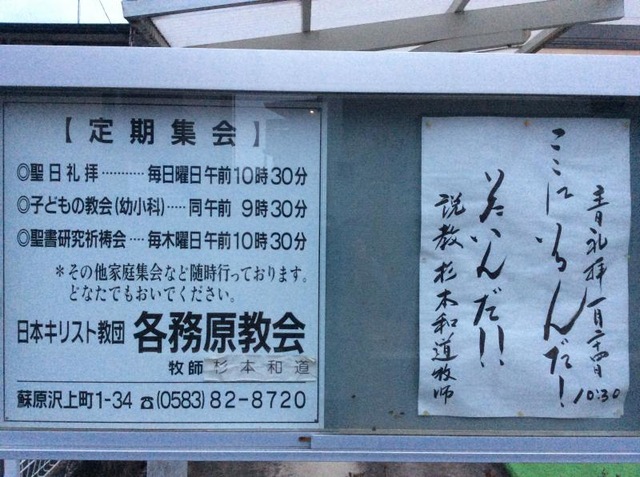 【定期集会】
◎聖日礼拝………毎日曜日午前10時30分
◎子どもの教会(幼小科)……同午前 9時30分
◎聖書研究祈祷会…毎木曜日午前10時30分
＊その他家庭集会など随時行っております。
どなたでもおいでください。
日本キリスト教団 各務原教会
牧師 杉本和道
蘇原沢上町1-34 ☎(0583)82-8720
礼拝 一月二十四日 10:30
ここに
んだ!
んだ!!
説教 杉本和道牧師